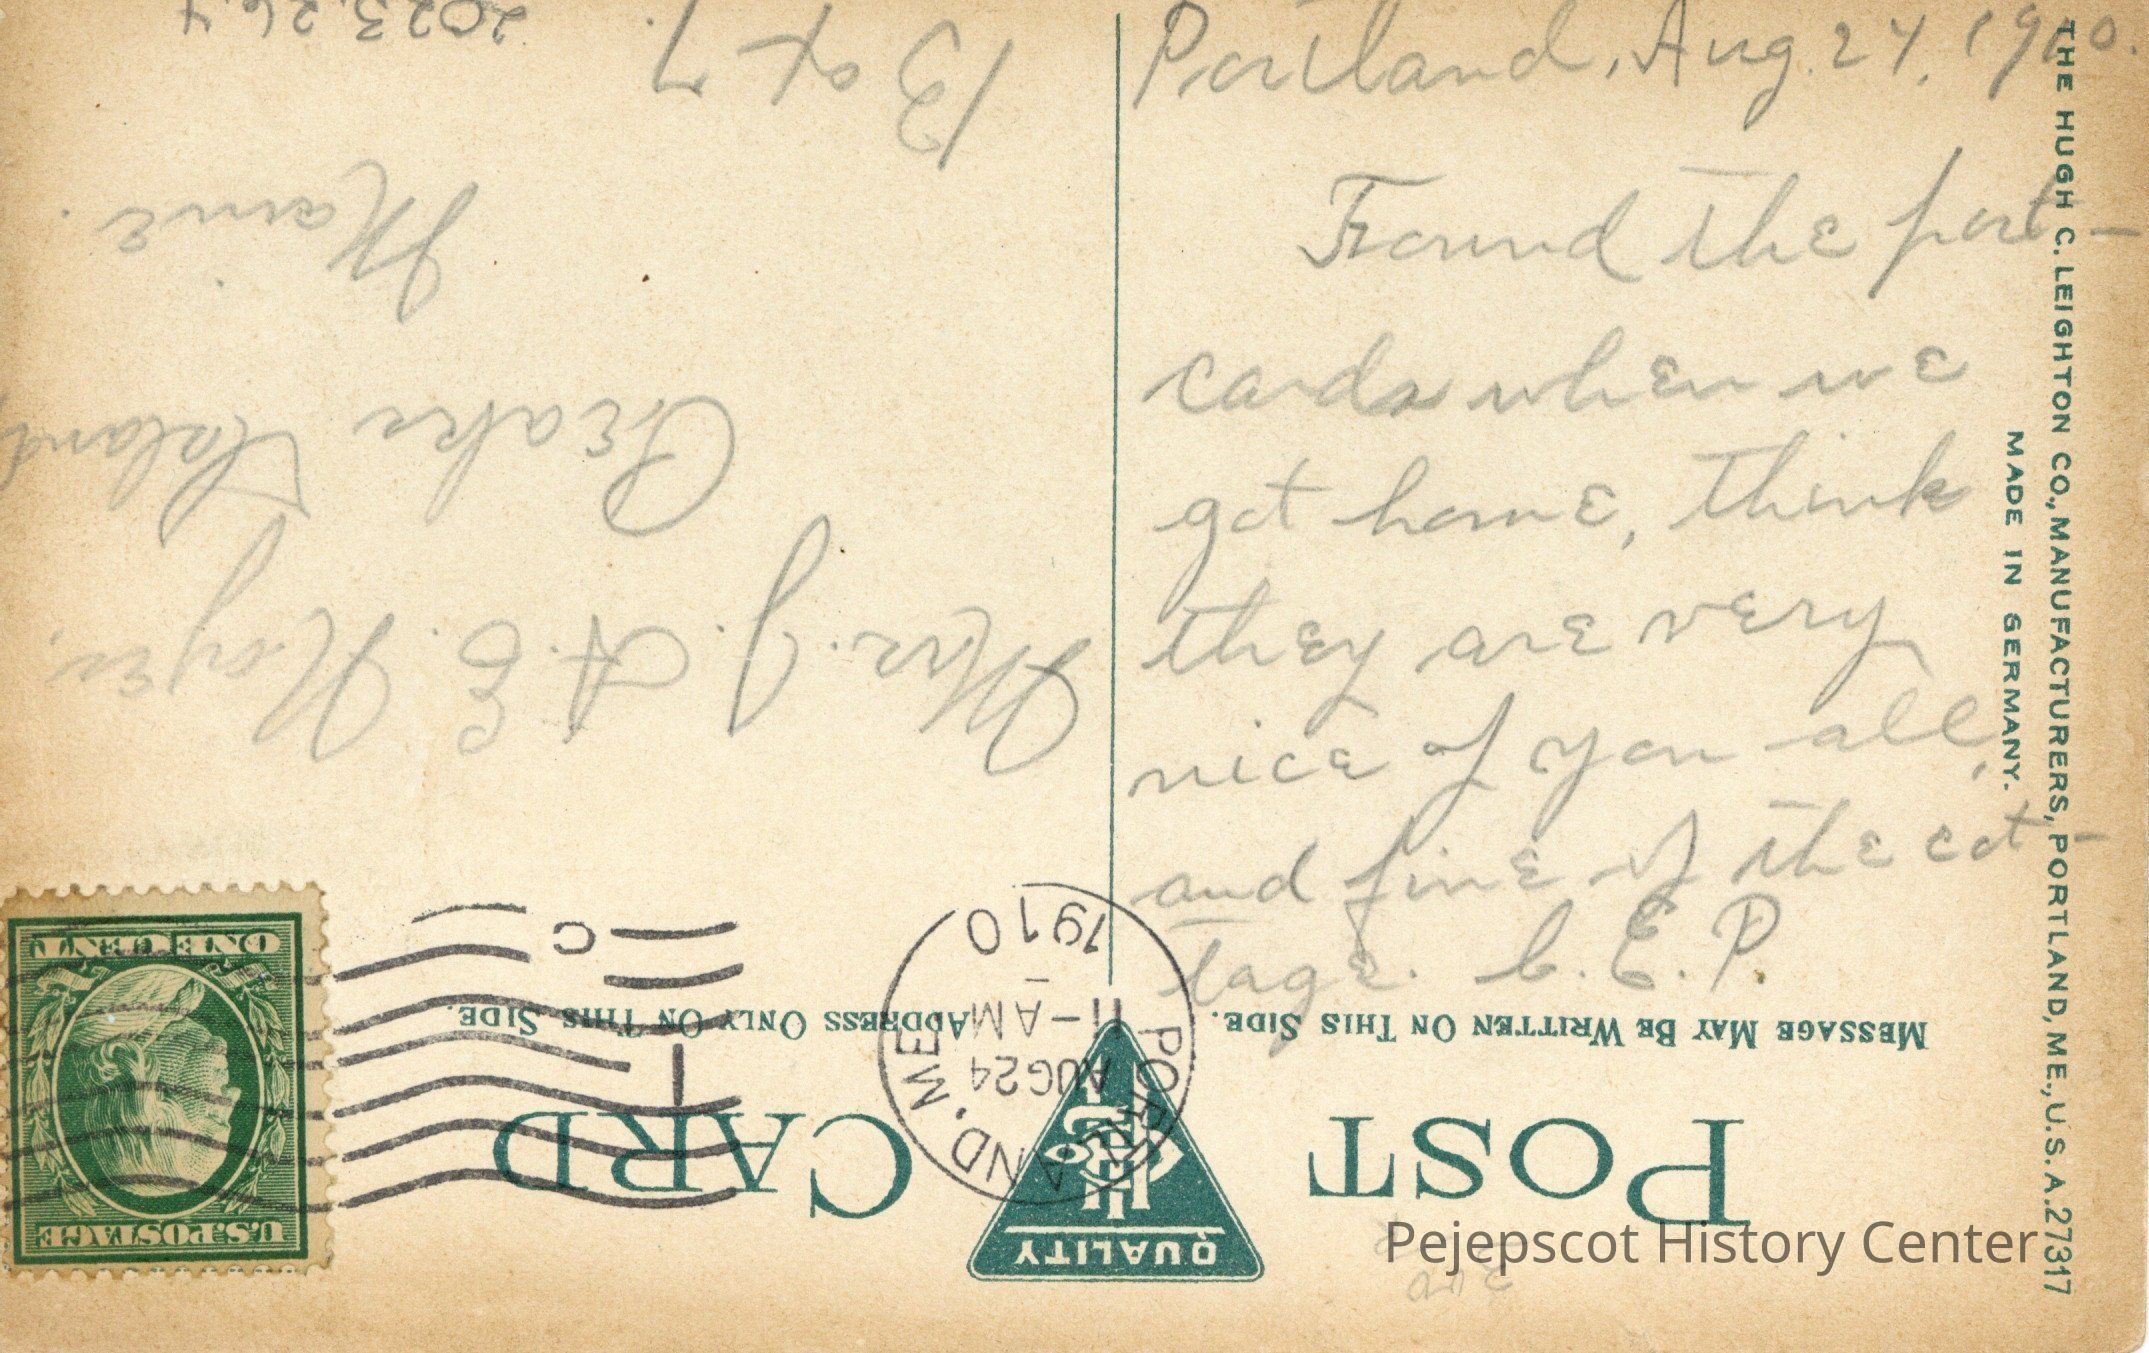 Portland, Aug. 24, 1910.
Found the post-
cards when we
got home, think
they are very
nice of you all,
and fine of the cot-
tage. C. E. P.
THE HUGH C. LEIGHTON CO., MANUFACTURERS, PORTLAND, ME., U.S.A. 27317
MADE IN GERMANY.
POST CARD
QUALITY
MESSAGE MAY BE WRITTEN ON THIS SIDE.
ADDRESS ONLY ON THIS SIDE.
PORTLAND, ME
AUG 24
11-AM
1910
C
U.S. POSTAGE
ONE CENT
Mrs. J. A. E. Noyes,
Peaks Island
Maine.
2023.26.4
Pejepscot History Center